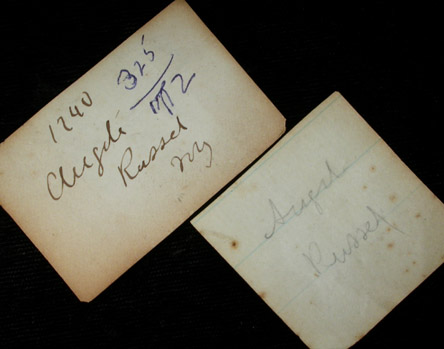 1240
325
Angeli
Russel
ny
Angel
Russel